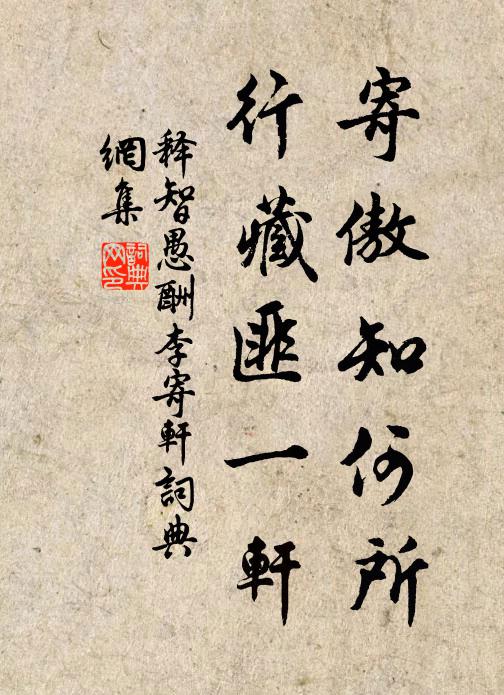 寄傲知何所
行藏匪一軒
释智愚酬李寄軒詞典
網集
詞典
网印